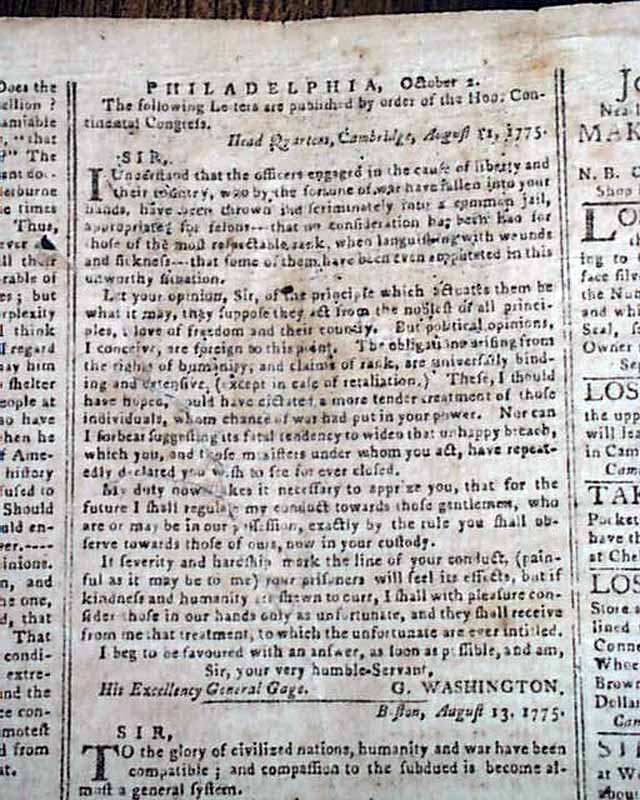 PHILADELPHIA, October 2.
The following Letters are published by order of the Hon. Con-
tinental Congress.
Head Quarters, Cambridge, August 11, 1775.
SIR,
I Understand that the officers engaged in the cause of liberty and
their country, who by the fortune of war have fallen into your
hands, have been thrown indiscriminately into a common jail,
appropriated for felons---that no consideration has been had for
those of the most respectable rank, when languishing with wounds
and sickness---that some of them have been even amputated in this
unworthy situation.
Let your opinion, Sir, of the principle which actuates them be
what it may, they suppose they act from the noblest of all princi-
ples, a love of freedom and their country. But political opinions,
I conceive, are foreign to this point. The obligations arising from
the rights of humanity, and claims of rank, are universally bind-
ing and extensive, (except in case of retaliation.) These, I should
have hoped, would have dictated a more tender treatment of those
individuals, whom chance of war had put in your power. Nor can
I forbear suggesting its fatal tendency to widen that unhappy breach,
which you, and those ministers under whom you act, have repeat-
edly declared you wish to see for ever closed.
My duty now makes it necessary to apprize you, that for the
future I shall regulate my conduct towards those gentlemen, who
are or may be in our possession, exactly by the rule you shall ob-
serve towards those of ours, now in your custody.
If severity and hardship mark the line of your conduct, (pain-
ful as it may be to me) your prisoners will feel its effects, but if
kindness and humanity are shewn to ours, I shall with pleasure con-
sider those in our hands only as unfortunate, and they shall receive
from me that treatment, to which the unfortunate are ever intitled.
I beg to be favoured with an answer, as soon as possible, and am,
Sir, your very humble Servant,
His Excellency General Gage. G. WASHINGTON.
Boston, August 13, 1775.
SIR,
TO the glory of civilized nations, humanity and war have been
compatible; and compassion to the subdued is become al-
most a general system.